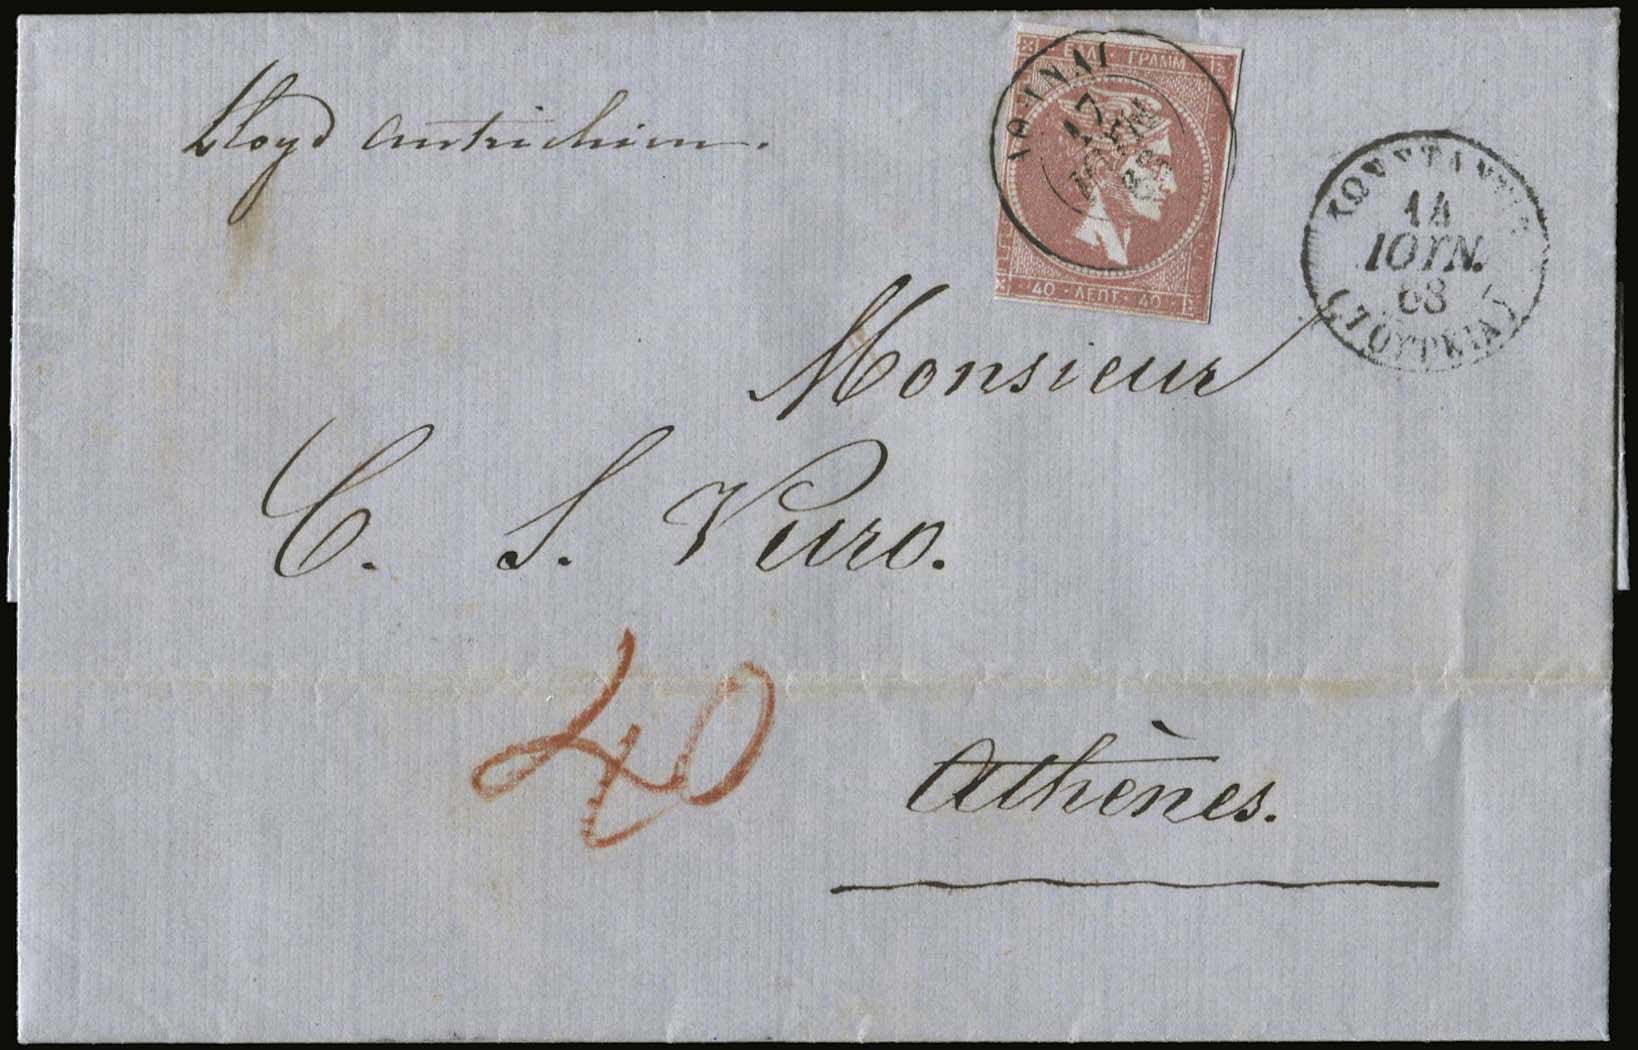 Lloyd autrichien.
ΕΛΛ. ΓΡΑΜΜ
ΑΘΗΝΑΙ
17
ΙΟΥΝ
40 · ΛΕΠΤ · 40
14
ΙΟΥΝ.
68
(ΤΟΥΡΚΙΑ)
Monsieur
C. S. Vuro.
40
Athènes.